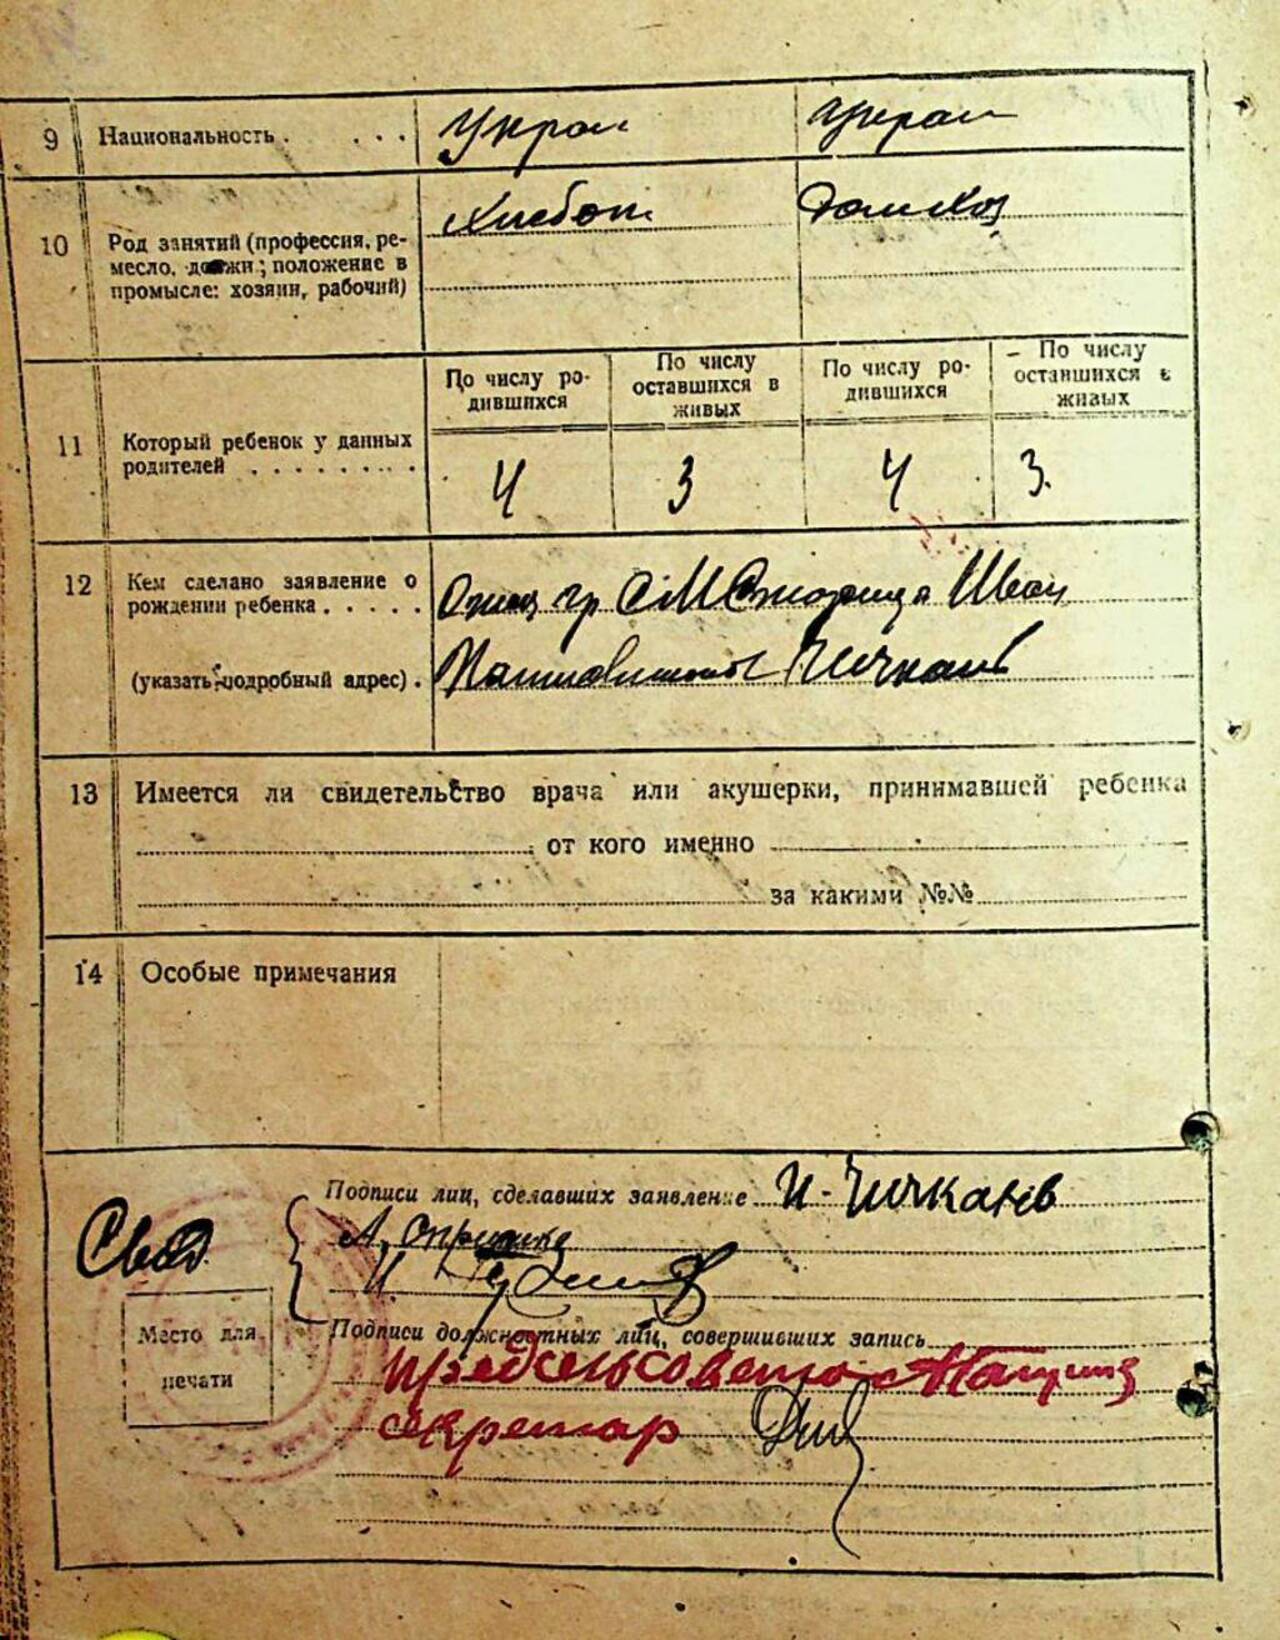 9 Национальность . . . . Укра Украи
10 Род занятий (профессия, ре-
месло, должн; положение в
промысле: хозяин, рабочий)
Хлебот Домхоз
По числу ро-
дившихся
По числу
оставшихся в
живых
По числу ро-
дившихся
По числу
оставшихся в
живых
11 Который ребенок у данных
родителей . . . . . . . .
4 3 4 3.
12 Кем сделано заявление о
рождении ребенка . . . . .
(указать подробный адрес) .
Отец гр С М Иван
Чичкань
13 Имеется ли свидетельство врача или акушерки, принимавшей ребенка
от кого именно
за какими №№
14 Особые примечания
Подписи лиц, сделавших заявление И. Чичканів
А.
И.
Свід.
Место для
печати
Подписи должностных лиц, совершивших запись
Предсельсовета
секретар